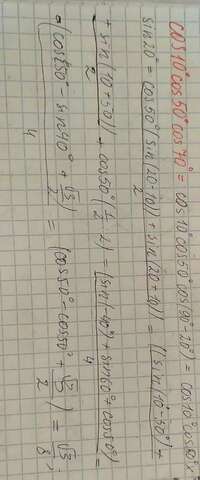 cos10°cos50°cos70° = cos10°cos50°cos(90°-20°) = cos10°cos50°×
sin20° = cos50°(sin(20-10)) + sin(20+10))/2 = ((sin(10°-50°) +
+ sin(10+50))/2 + cos50°(1/2 · 1/2) = (sin(-40°) + sin60° + cos50°)/4 =
= (cos50° - sin40° + √3/2)/4 = (cos50° - cos50° + √3/2) = √3/8;